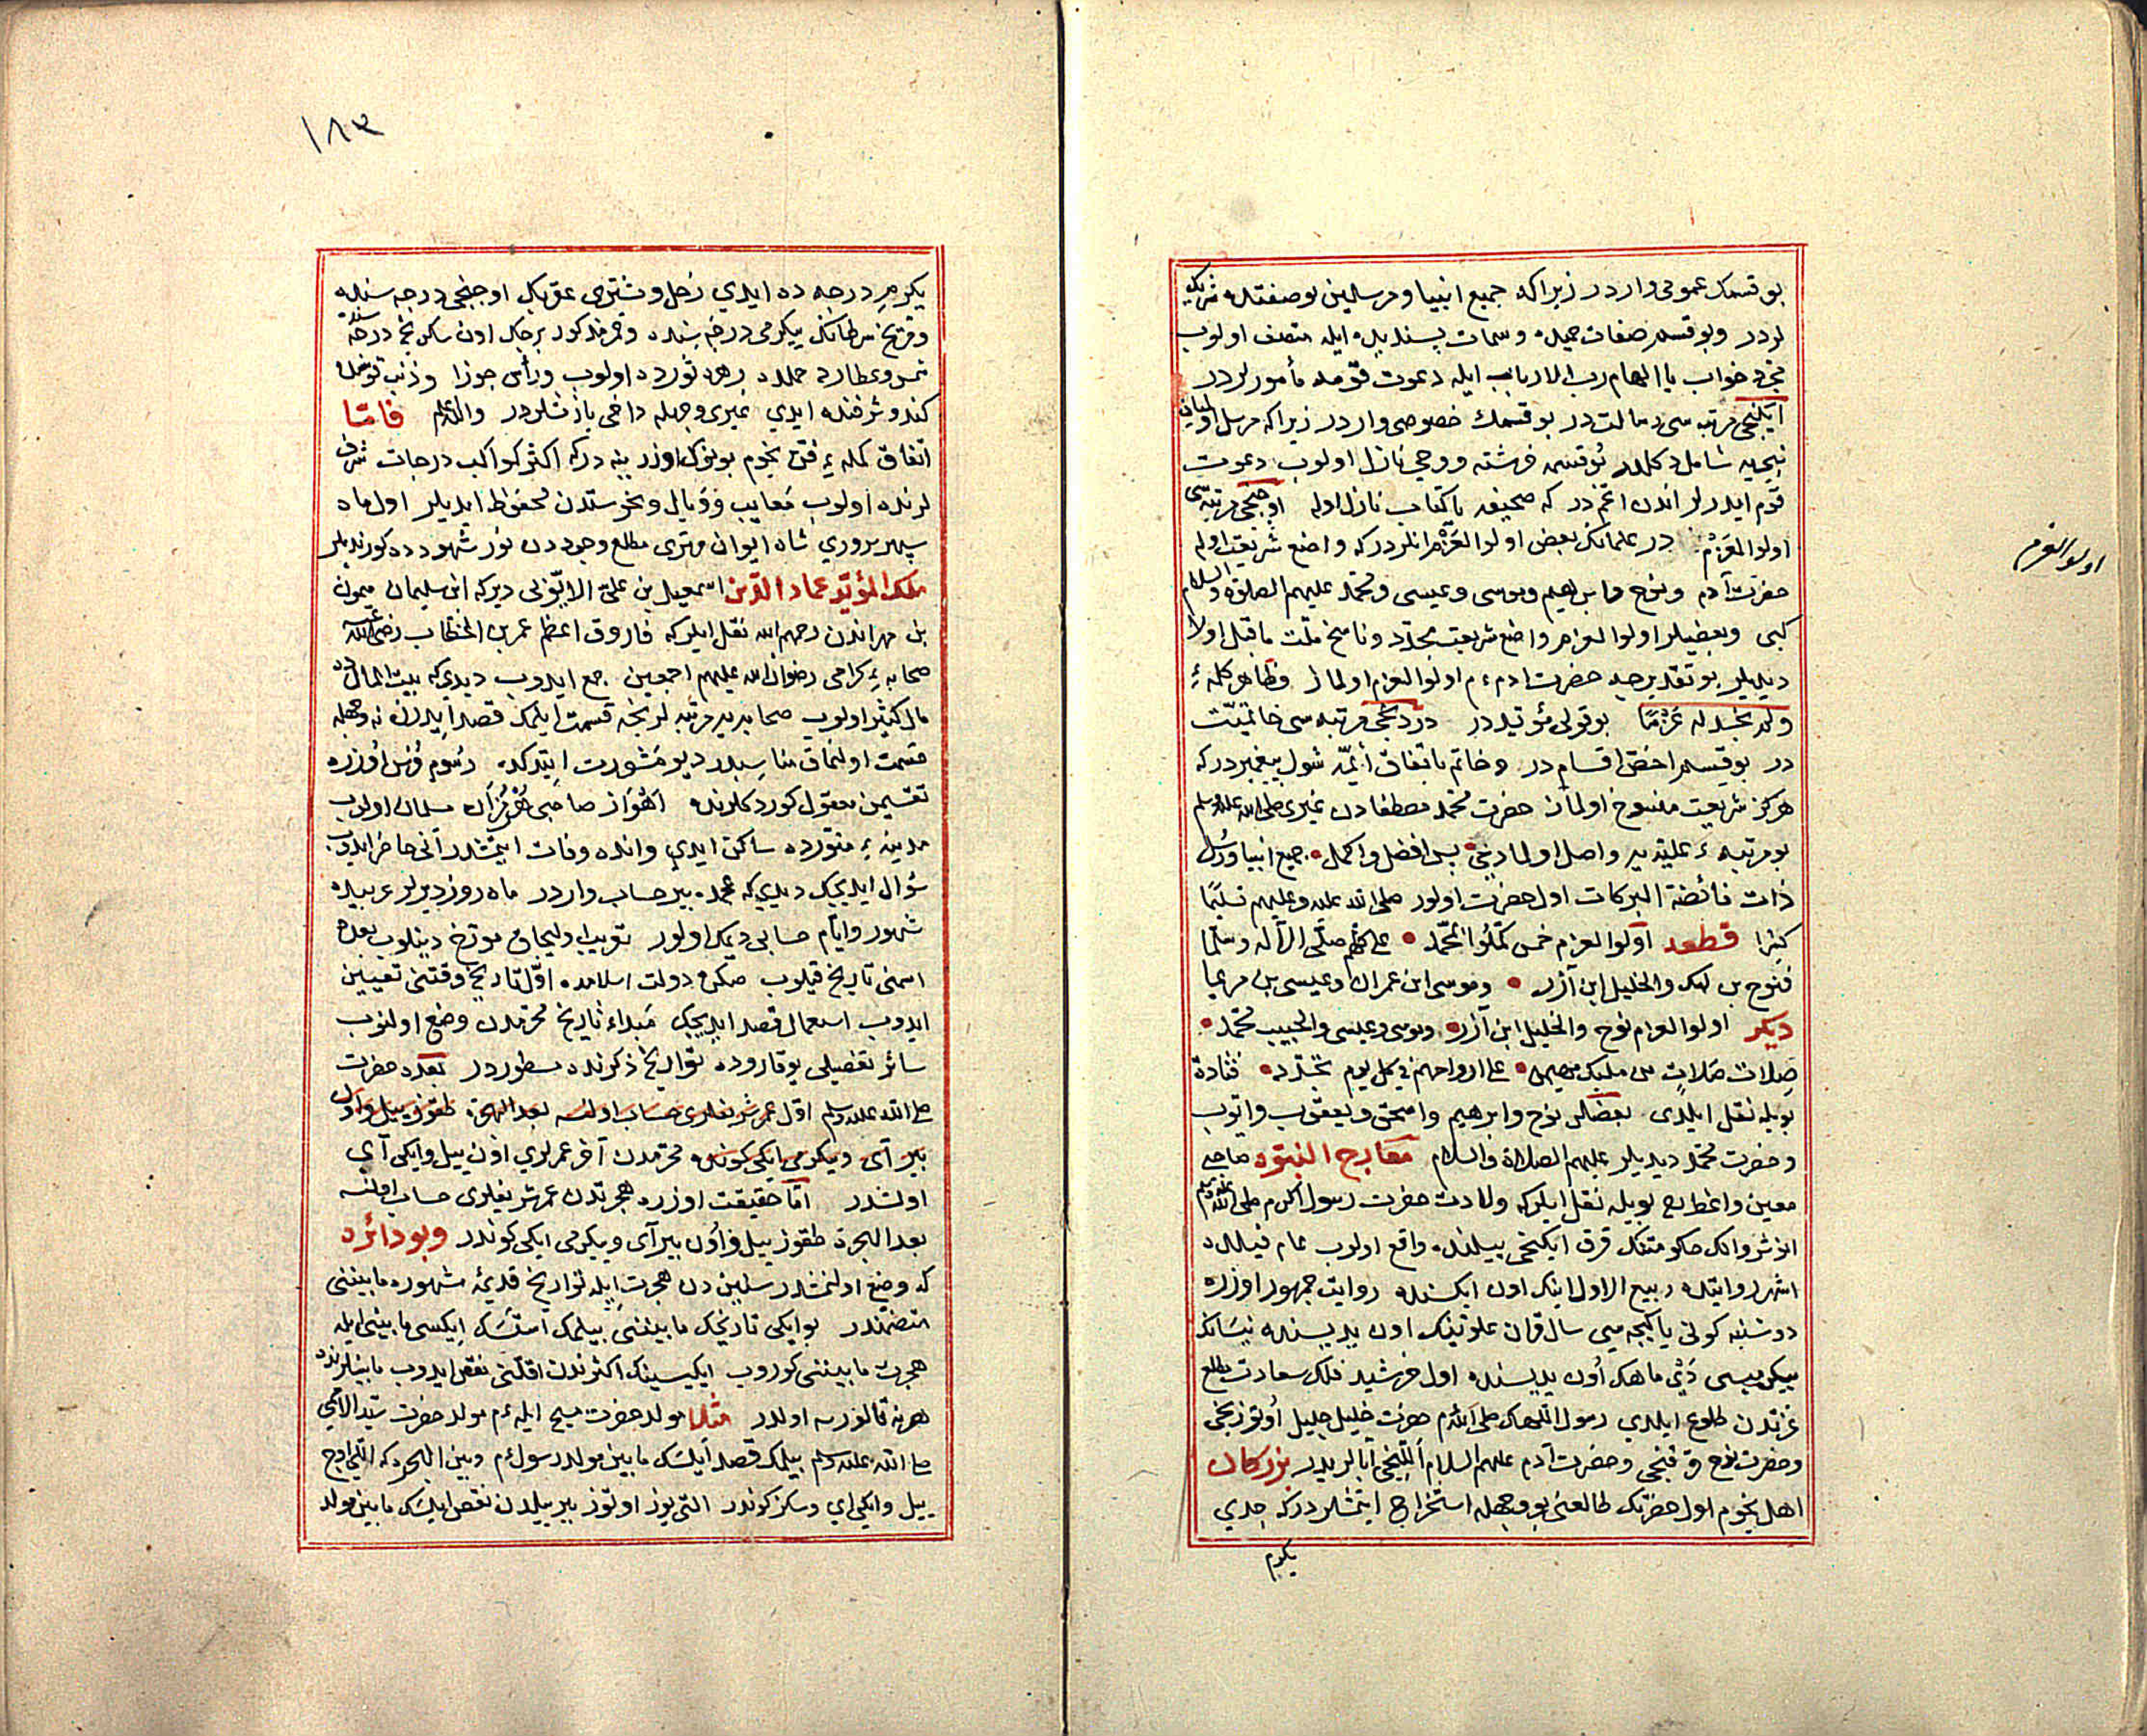 بو قسمك عمومی واردر زیراکه جمیع انبیا ومرسلین بو صفتله شریك
لردر وبو قسم صفات جمیله وسمات پسندیده ایله متصف اولوب
خواب یا الهام رب الارباب ایله دعوت قومه مأمورلردر
ایکنجی مرتبه سی رسالت در بو قسمك خصوصی واردر زیراکه مرسل اولمیان
نبی یه شامل دکلدر بو قسمه فرشته ووحی نازل اولوب دعوت
قوم ایدرلر اندن اعم در که صحیفه یا کتاب نازل اوله اوچنجی مرتبه سی
اولوا العزم در علمانك بعض اولوا العزم انلردرکه واضع شریعت اوله
حضرت آدم ونوح وابراهیم وموسی وعیسی ومحمد علیهم الصلوة والسلام
کبی وبعضیلر اولوا العزم واضع شریعت مجدد وناسخ ملت ماقبل اولا
دیدیلر بو تقدیرجه حضرت ادم ءم اولوا العزم اولماز وظاهر کلمهٔ
ولم نجد له عزما بو قولی مؤیددر دردنجی مرتبه سی خاتمیت
در بو قسم اخص اقسام در وخاتم باتفاق ائمه شول پیغمبردر که
هرکز شریعت منسوخ اولماز حضرت محمد مصطفادن غیری صلی الله علیه وسلم
بو مرتبهٔ علیه یه واصل اولمادیغی پس افضل واکمل جمیع انبیا ورسل
ذات فائضة البرکات اول حضرت اولور صلی الله علیه وعلیهم تسلیما
کثیرا قطعه اولوا العزم خمس کملوا بمحمد علی کلهم صلی الاله وسلما
فنوح بن لمك والخلیل ابن آزر وموسی ابن عمران وعیسی بن مریما
دیکر اولوا العزم نوح والخلیل ابن آزر وموسی وعیسی والحبیب محمد
صلات صلات من ملیك مهیمن علی ارواحهم فی کل یوم تجدد قتادة
بویله نقل ایلدی بعضلر نوح وابرهیم واسحق ویعقوب وایوب
وحضرت محمد دیدیلر علیهم الصلاة والسلام معارج النبوه صاحبی
معین واعظ بویله نقل ایلرکه ولادت حضرت رسول اکرم صلی الله علیه وسلم
انوشروانك حکومتنك قرق ایکنجی ییلنده واقع اولوب عام فیلده
اشهر روایتله ربیع الاول اینك اون ایکسنده روایت جمهور اوزره
دوشنبه کونی یا کیجه سی سال قران علویینك اون یدیسنده نیسانك
یکرمیسی دی ماهك اون یدیسنده اول خورشید فلك سعادت مطلع
عزتدن طلوع ایلدی رسول اللهك صلی الله م حضرت خلیل جلیل اوتوزنجی
وحضرت نوح قرقنجی وحضرت آدم علیهم السلام اللینجی آبالریدر بزرکان
اهل نجوم اول حضرتك طالعنی بو وجهله استخراج ایتمشلردرکه جدی
یکرم
اولوالعزم
١٨٣
یکرمی درجه ده ایدی زحل ومشتری عقربك اوچنجی درجه سنده
ومریخ سرطانك یکرمی درجه سنده وقمر مذکور برجك اون سکزنجی درجه سنده
شمس وعطارد حملده زهره ثورده اولوب ورأس جوزا وذنب قوسده
کندو شرفنده ایدی غیری وجهله داخی یازمشلردر والله اعلم فاما
اتفاق کملهٔ فن نجوم بونوك اوزرینه درکه اکثر کواکب درجات شرف
لرنده اولوب معایب ووبال ونحوستدن محفوظ ایدیلر اول ماه
سپهر سروری شاه ایوان مهتری مطلع وجوددن نور شهودده کورندیلر
ملك المؤید عماد الدین اسمعیل بن علی الایوبی دیرکه ابن سلیمان میمون
بن مهراندن رحمهم الله نقل ایلرکه فاروق اعظم عمر بن الخطاب رضی الله عنه
صحابهٔ کرامی رضوان الله علیهم اجمعین جمع ایدوب دیدی که بیت المالده
مال کثیر اولوب صحابه یه مرتبه لرنجه قسمت ایلمك قصد ایدرز نه وجهله
قسمت اولنماق مناسبدر دیو مشورت ایتدکده رسوم فرس اوزره
تقسیمن معقول کوردکلرنده اهواز صاحبی هرمزان مسلمان اولوب
مدینهٔ منوره ده ساکن ایدی وانده وفات ایتمشدر آنی حاضر ایدوب
سؤال ایدیجك دیدی که عجمده بیر حساب واردر ماه روز دیرلر عربیده
شهور وایام حسابی دیمك اولور تعریب اولیجاق مورخ دینلوب بعده
اسمنی تاریخ قیلوب صکره دولت اسلامده اول تاریخ وقتنی تعیین
ایدوب استعمال قصد ایدیجك مبداء تاریخ محرمدن وضع اولنوب
سائر تفصیلی یوقاروده تواریخ ذکرنده مسطوردر بعده حضرت
صلی الله علیه وسلم اول عمر شریفلری حساب اولنسه بعد الهجرة طقوز ییل واون
بیر آی ویکرمی ایکی کونسه محرمدن آخر عمرلری اون ییل وایکی آی
اولشدر اما حقیقت اوزره هجرتدن عمر شریفلری حساب اولنسه
بعد الهجرة طقوز ییل واون بیر آی ویکرمی ایکی کوندر وبو دائره
که وضع اولنمشدر سلیین دن هجرت ایله تواریخ قدیمهٔ مشهوره مابیننی
متضمندر بو ایکی تاریخك مابیننی بیلمك استسك ایکسی مابینی ایله
هجرت مابیننی کوروب ایکیسینك اکثرندن اقلنی نقص ایدوب مابینلرنده
هرنه قالورسه اولدر مثلا مولد حضرت مسیح ایله ءم مولد حضرت سید الانامی
صلی الله علیه وسلم بیلمك قصد ایلسك مابین مولد رسول ءم وبین الهجره که اللی اوچ
ییل وایکی آی وسکز کوندر التی یوز اوتوز بیر ییلدن نقص ایلسك مابین مولد